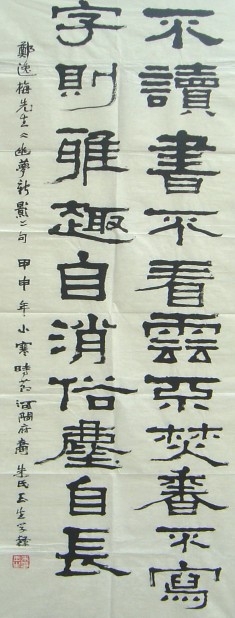 不讀書不看雲不焚香不寫
字則雅趣自消俗塵自長
鄭逸梅先生幽夢新影二句 甲申年小寒時節